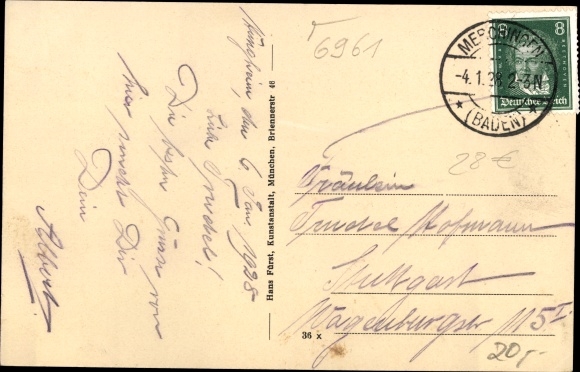 6961
Mingolsheim, den 6. Jan. 1928
Liebe Friedel!
Die besten Grüsse von
hier sendet Dir
Dein
Albert
Hans Fürst, Kunstanstalt, München, Briennerstr 46
36 x
MERCHINGEN
-4.1.28.2-3N.
(BADEN)
8 8
Deutsches Reich
28 €
Fräulein
Friedel Hofmann
Stuttgart
Wagenburgstr 115 I
20,-